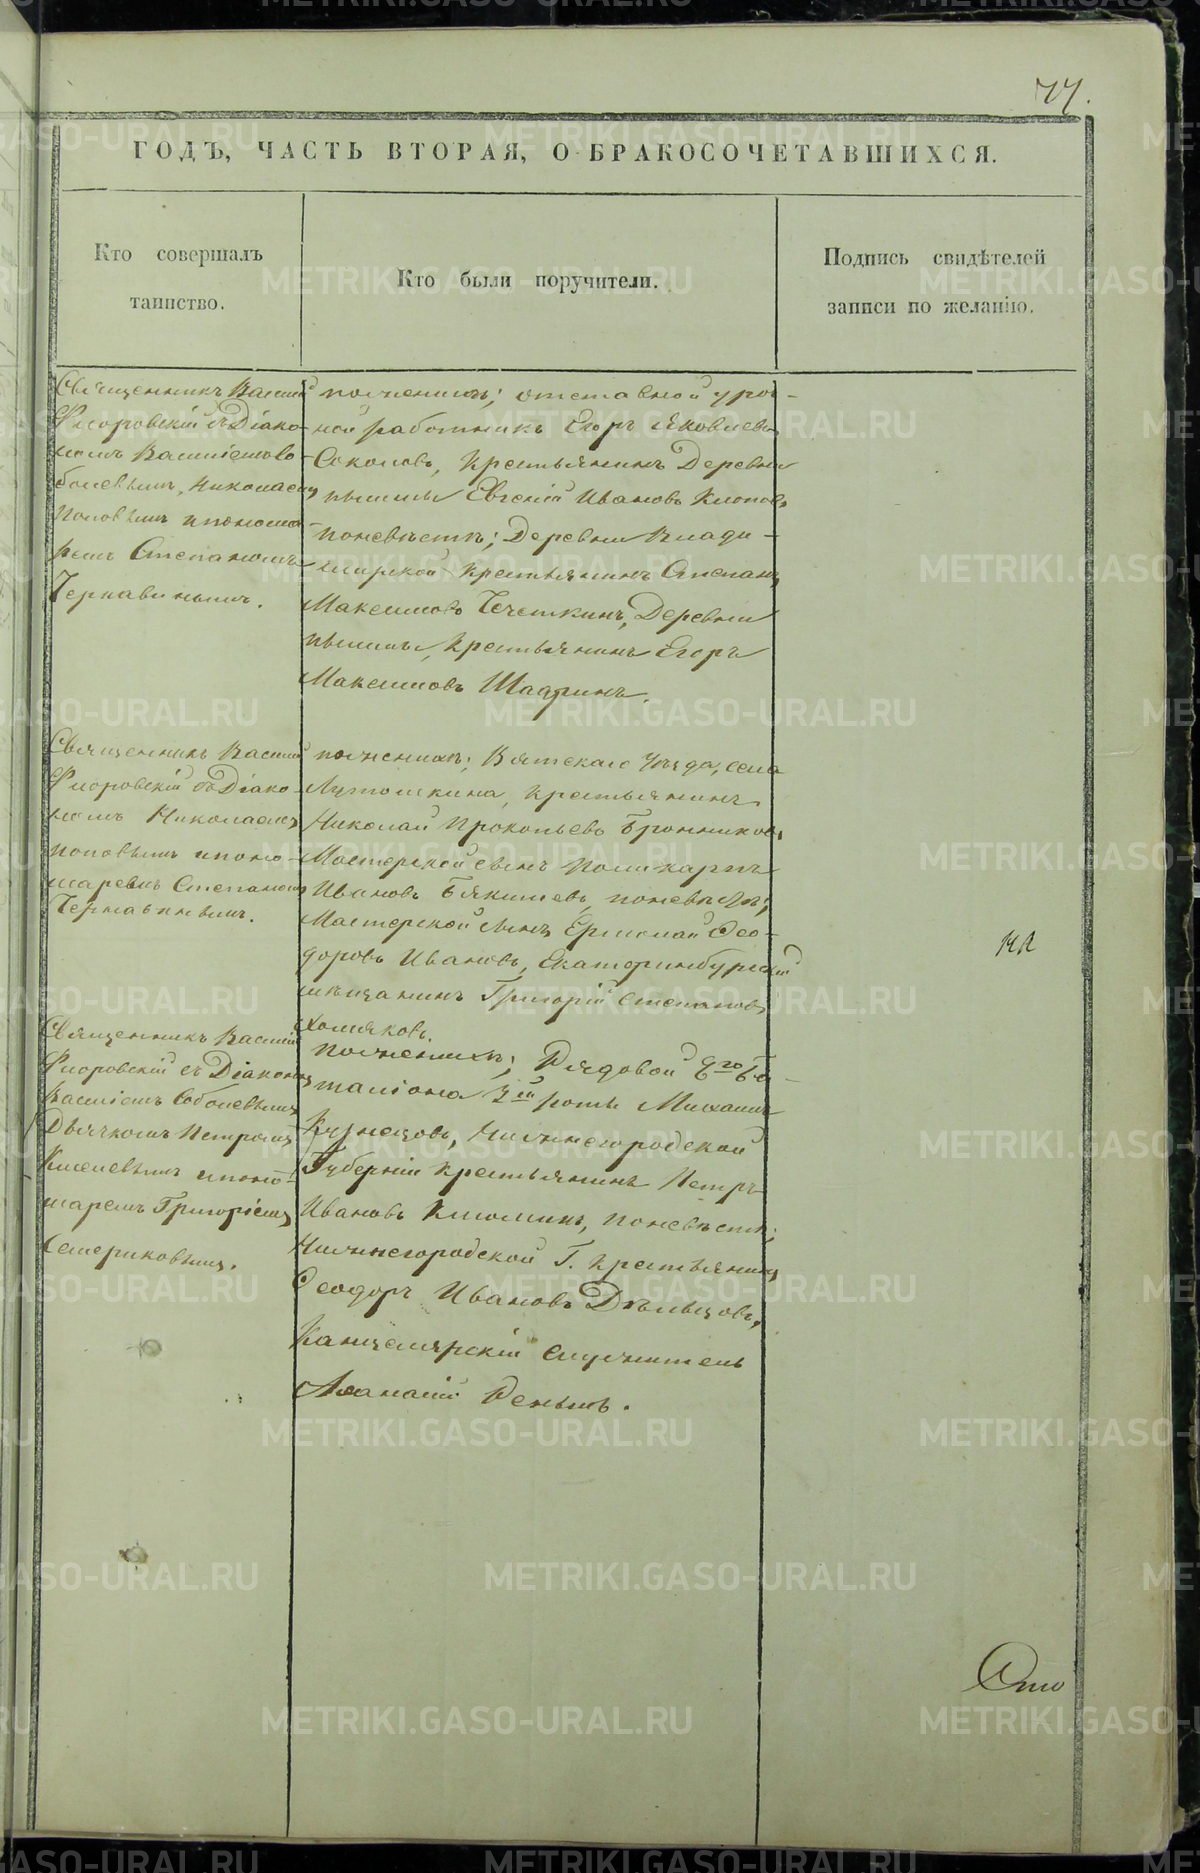 77.
ГОДЪ, ЧАСТЬ ВТОРАЯ, О БРАКОСОЧЕТАВШИХСЯ.
Кто совершалъ
таинство.
Кто были поручители.
Подпись свидѣтелей
записи по желанію.
Священникъ Василій
Флоровскій съ Діако-
номъ Василіемъ Со-
болевымъ, Николаемъ
Поповымъ и понома-
ремъ Степаномъ
Чернавинымъ.
по женихѣ; отставной уроч-
ной работникъ Егоръ Яковлевъ
Соколовъ, Крестьянинъ Деревни
Пышмы Евгеній Ивановъ Клоповъ,
по невѣстѣ; Деревни Влади-
мирской крестьянинъ Степанъ
Максимовъ Чечеткинъ, Деревни
Пышмы, Крестьянинъ Егоръ
Максимовъ Шадринъ.
Священникъ Василій
Флоровскій съ Діако-
номъ Николаемъ
Поповымъ и поно-
маремъ Степаномъ
Чернавинымъ.
по женихѣ; Вятскаго Уѣзда, села
крестьянинъ
Николай Прокопьевъ Бронниковъ,
Мастерской сынъ Поликарпъ
Ивановъ по невѣстѣ;
Мастерской сынъ Ермолай Ѳео-
доровъ Ивановъ, Екатеринбургскій
мѣщанинъ Григорій Степановъ
Хомяковъ.
Священникъ Василій
Флоровскій съ Діакономъ
Василіемъ Соболевымъ
Дьячкомъ Петромъ
Киселевымъ и поно-
маремъ Григоріемъ
Семериковымъ.
По женихѣ; Рядовой 6го Ба-
таліона 2ой роты Михаилъ
Кузнецовъ, Нижнегородской
Губерніи крестьянинъ Петръ
Ивановъ по невѣстѣ;
Нижнегородской Г. крестьянинъ
Ѳеодоръ Ивановъ
Канцелярскій Служитель
Аѳанасій
Ото
METRIKI.GASO-URAL.RU